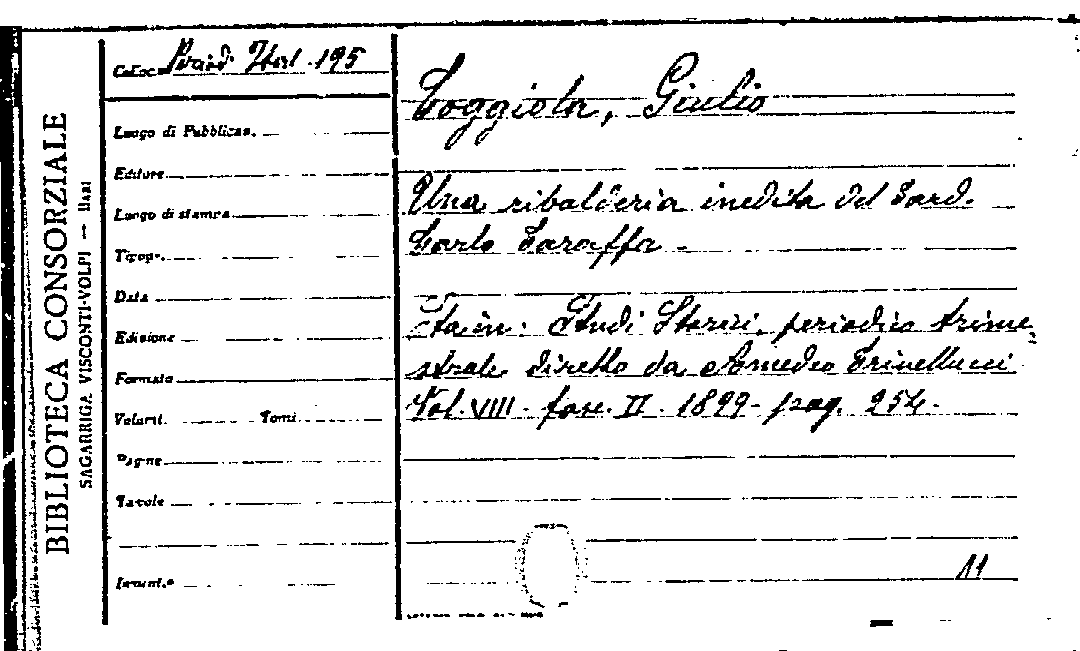 BIBLIOTECA CONSORZIALE
SAGARRIGA VISCONTI-VOLPI — BARI
Colloc. Period. Ital. 195
Luogo di Pubblicaz.
Editore
Luogo di stampa
Tipogr.
Data
Edizione
Formato
Volumi Tomi
Pagine
Tavole
Invent.°
Coggiola, Giulio
Una ribalderia inedita del Card.
Carlo Caraffa -
Sta in: Studi Storici, periodico trime-
strale diretto da Amedeo Crivellucci
Vol. VIII - fasc. II - 1899 - pag. 254.
11